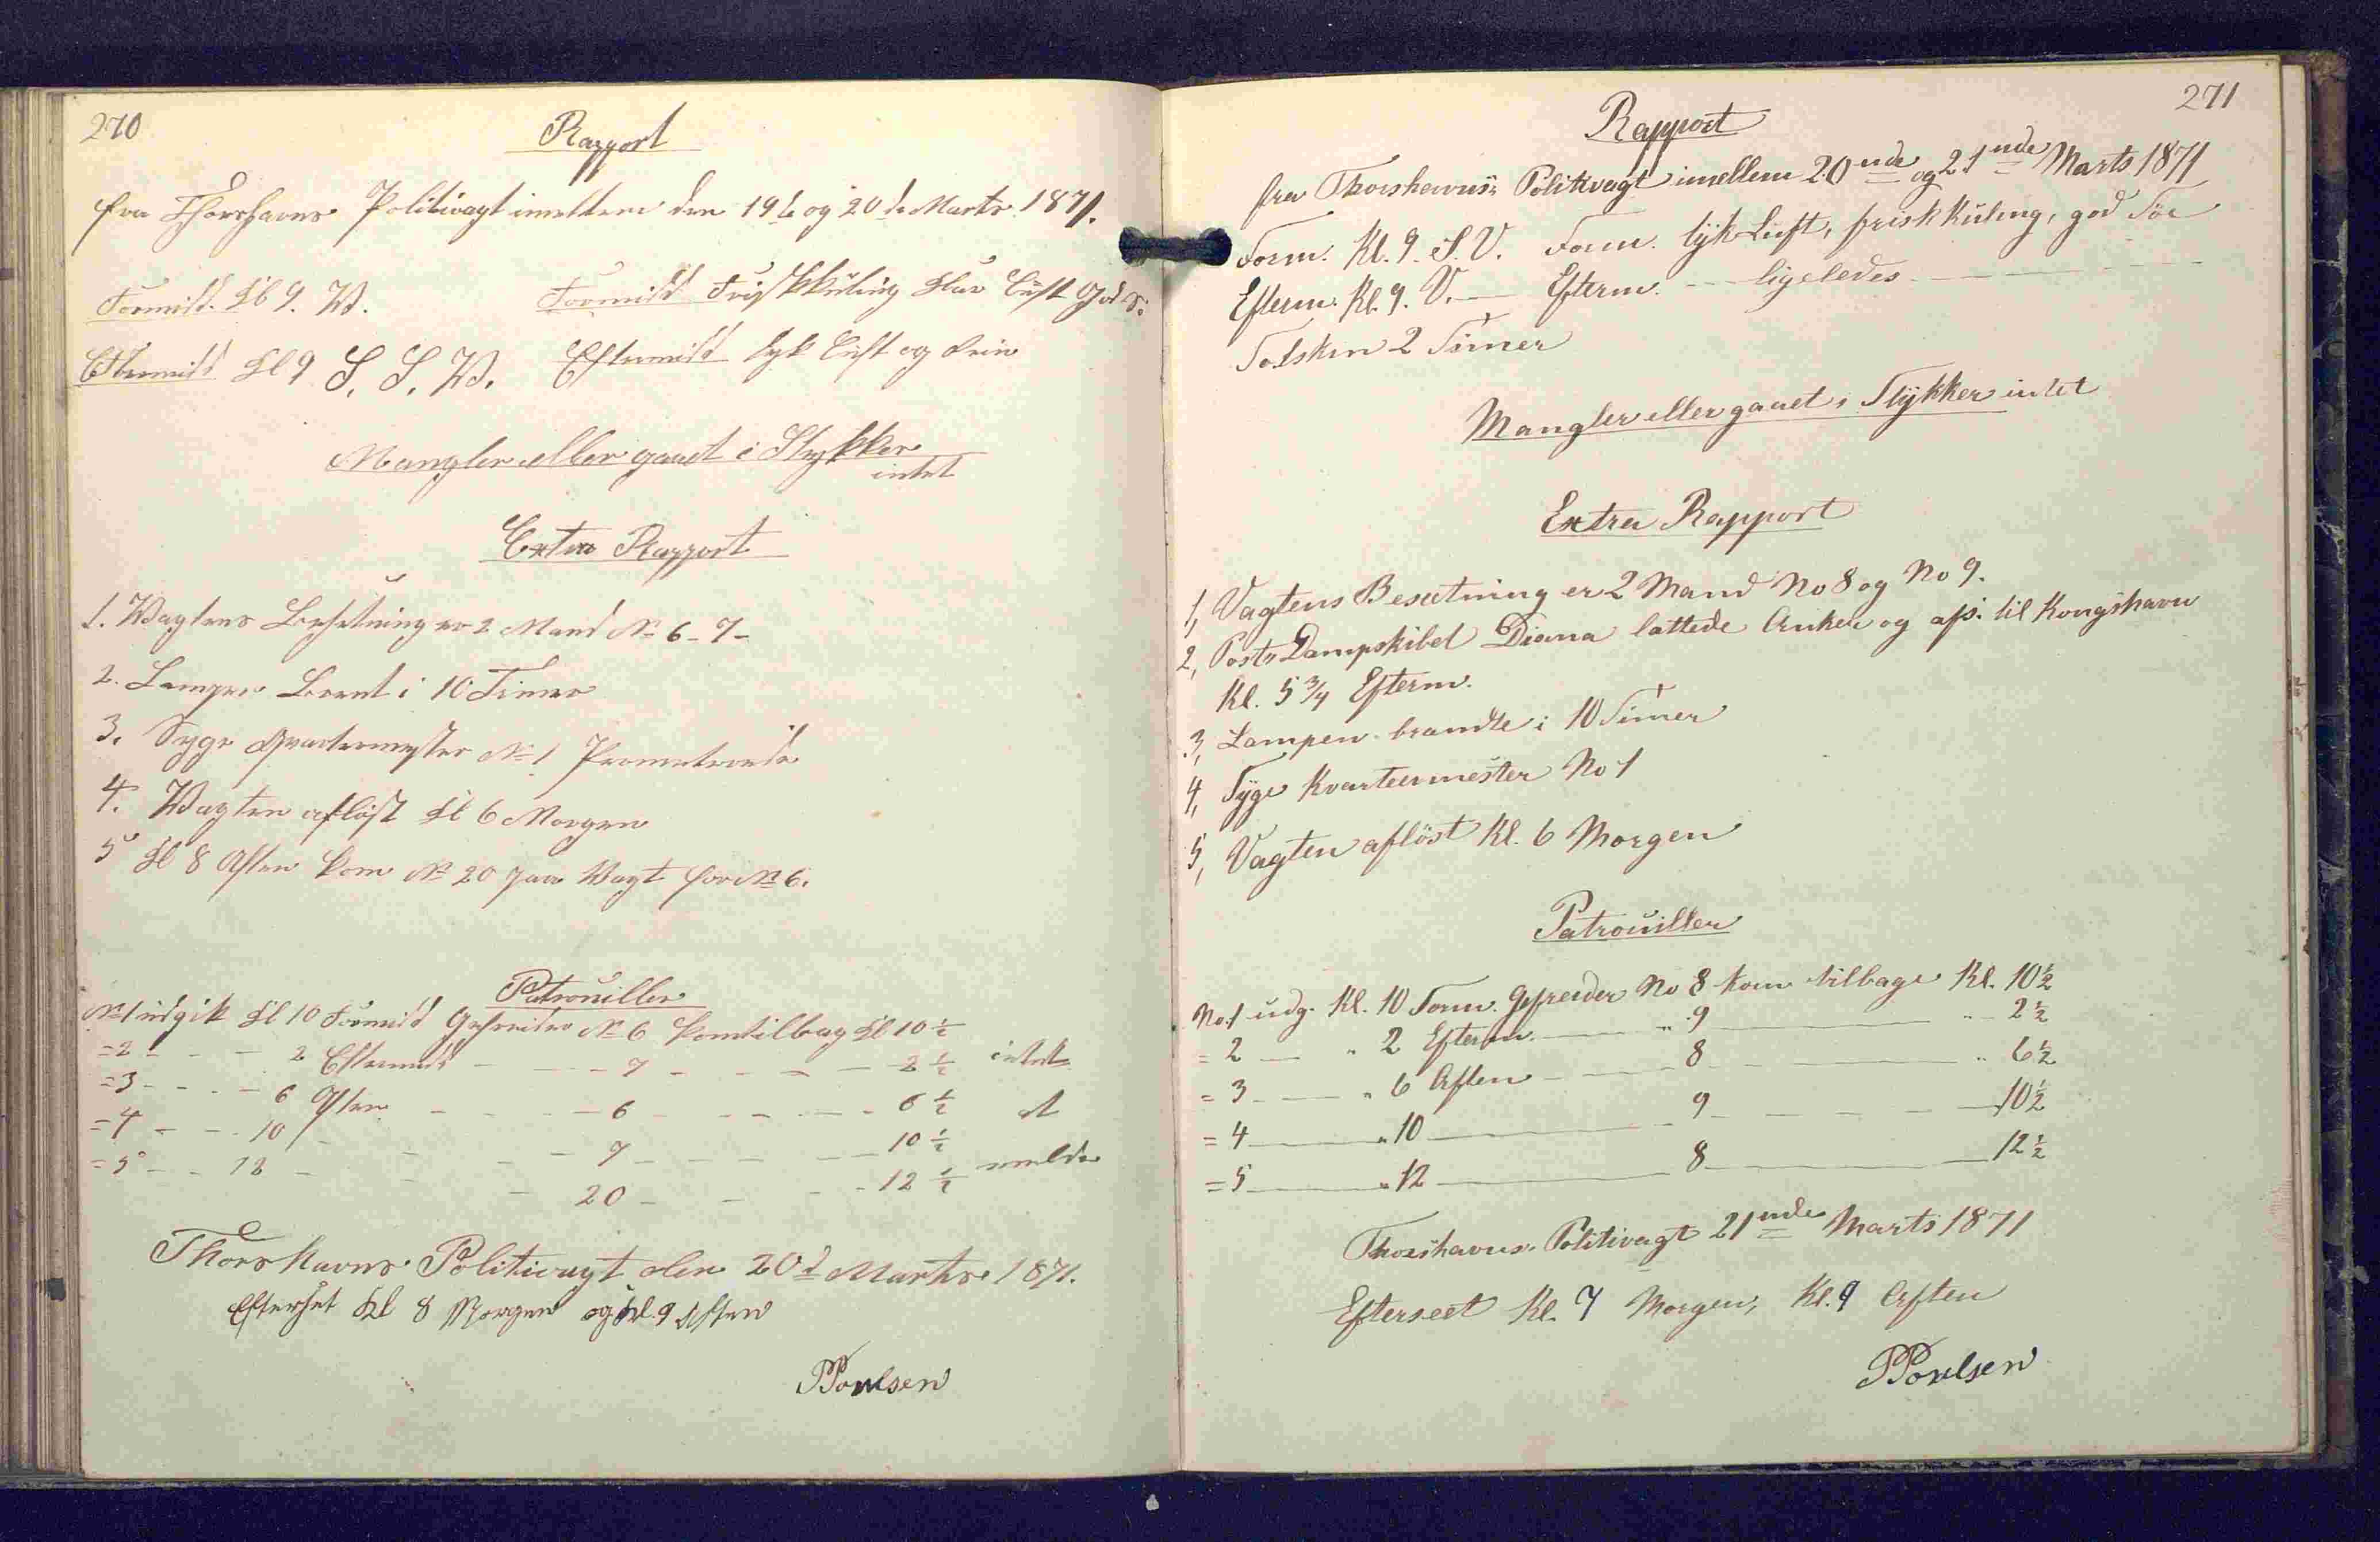 270
Rapport
fra Thorshavns Politivagt imellem den 19de og 20de Marts 1871.
Formidd. Kl 9. W. Formidd Friskkuling Klar Luft God S:
Eftermidd Kl 9 S. S. W. Eftermidd tyk Luft og
Mangler eller gaaet i Stykker
intet
Extra Rapport
1. Wagtens Besetning er 2 Mand No 6-7-
2. Lampen Brent i 10 Timer
3. Syge Qvartermester No 1
4. Wagten aflöst Kl 6 Morgen
5 Kl 8 Aften kom No 20 paa Wagt for No 6.
Patrouiller
No 1 udgik Kl 10 Formidd Gefreider No 6 kom tilbag Kl 10 1/2
=2 - - - 2 Eftermidd - - - 7 - - - - 2 1/2 intet
=3 - - - 6 Aften - - - 6 - - - - 6 1/2 at
=4 - - 10 - - - - 7 - - - - 10 1/2
=5 - - 12 - - - 20 - - - 12 1/2 melde
Thorshavns Politivagt den 20d Marts 1871.
Efterset Kl 8 Morgen og Kl. 9 Aften
PPoulsen
271
Rapport
fra Thorshavns Politivagt imellem 20nde og 21nde Marts 1871
Form. Kl. 9. S. V. Form. tyk Luft, frisk Kuling, god Töe
Efterm. Kl. 9. V. — Efterm. --- ligeledes - - - -
Solskin 2 Timer
Mangler eller gaaet i Stykker intet
Extra Rapport
1, Vagtens Besætning er 2 Mand No 8 og No 9.
2, Post Dampskibet Diana lattede Anker og afs. til Kongshavn
Kl. 5 3/4 Efterm.
3, Lampen brændte i 10 Timer
4, Syge Kvarteermester No 1
5, Vagten aflöst Kl. 6 Morgen
Patrouiller
No. 1 udg. Kl. 10 Form. Gefreider No 8 kom tilbage Kl. 10 1/2
= 2 — " 2 Efterm. — " 9 — " 2 1/2
= 3 — " 6 Aften — 8 — " 6 1/2
= 4 — " 10 — 9 — 10 1/2
= 5 — " 12 — 8 — 12 1/2
Thorshavns. Politivagt 21nde Marts 1871
Efterseet Kl. 7 Morgen, Kl. 9 Aften
PPoulsen